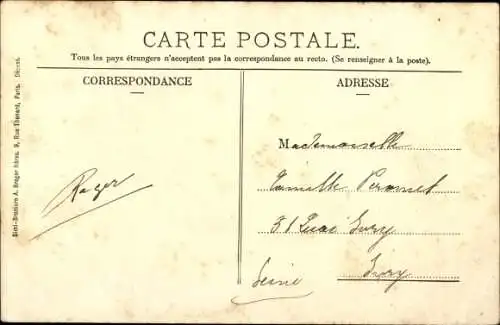 CARTE POSTALE.
Tous les pays étrangers n'acceptent pas la correspondance au recto. (Se renseigner à la poste).
CORRESPONDANCE
ADRESSE
Mademoiselle
Camille
31 Quai Ivry
Ivry
Seine
Roger
A. Breger frères, 9, Rue Thénard, Paris.